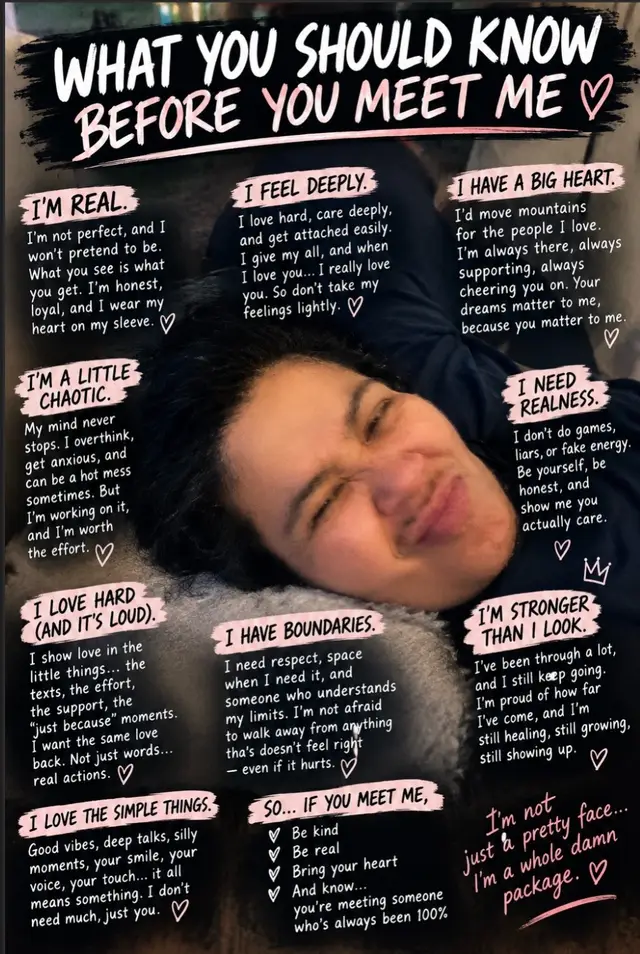 WHAT YOU SHOULD KNOW
BEFORE YOU MEET ME
I'M REAL.
I'm not perfect, and I
won't pretend to be.
What you see is what
you get. I'm honest,
loyal, and I wear my
heart on my sleeve.
I FEEL DEEPLY.
I love hard, care deeply,
and get attached easily.
I give my all, and when
I love you... I really love
you. So don't take my
feelings lightly.
I HAVE A BIG HEART.
I'd move mountains
for the people I love.
I'm always there, always
supporting, always
cheering you on. Your
dreams matter to me,
because you matter to me.
I'M A LITTLE
CHAOTIC.
My mind never
stops. I overthink,
get anxious, and
can be a hot mess
sometimes. But
I'm working on it,
and I'm worth
the effort.
I NEED
REALNESS.
I don't do games,
liars, or fake energy.
Be yourself, be
honest, and
show me you
actually care.
I LOVE HARD
(AND IT'S LOUD).
I show love in the
little things... the
texts, the effort,
the support, the
"just because" moments.
I want the same love
back. Not just words...
real actions.
I HAVE BOUNDARIES.
I need respect, space
when I need it, and
someone who understands
my limits. I'm not afraid
to walk away from anything
tha's doesn't feel right
— even if it hurts.
I'M STRONGER
THAN I LOOK.
I've been through a lot,
and I still keep going.
I'm proud of how far
I've come, and I'm
still healing, still growing,
still showing up.
I LOVE THE SIMPLE THINGS.
Good vibes, deep talks, silly
moments, your smile, your
voice, your touch... it all
means something. I don't
need much, just you.
SO... IF YOU MEET ME,
Be kind
Be real
Bring your heart
And know...
you're meeting someone
who's always been 100%
I'm not
just a pretty face...
I'm a whole damn
package.